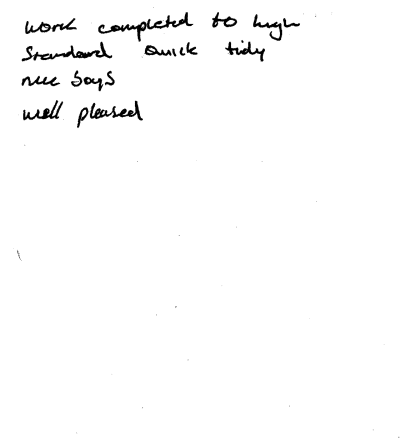 work completed to high
Standard quick tidy
nice boys
well pleased